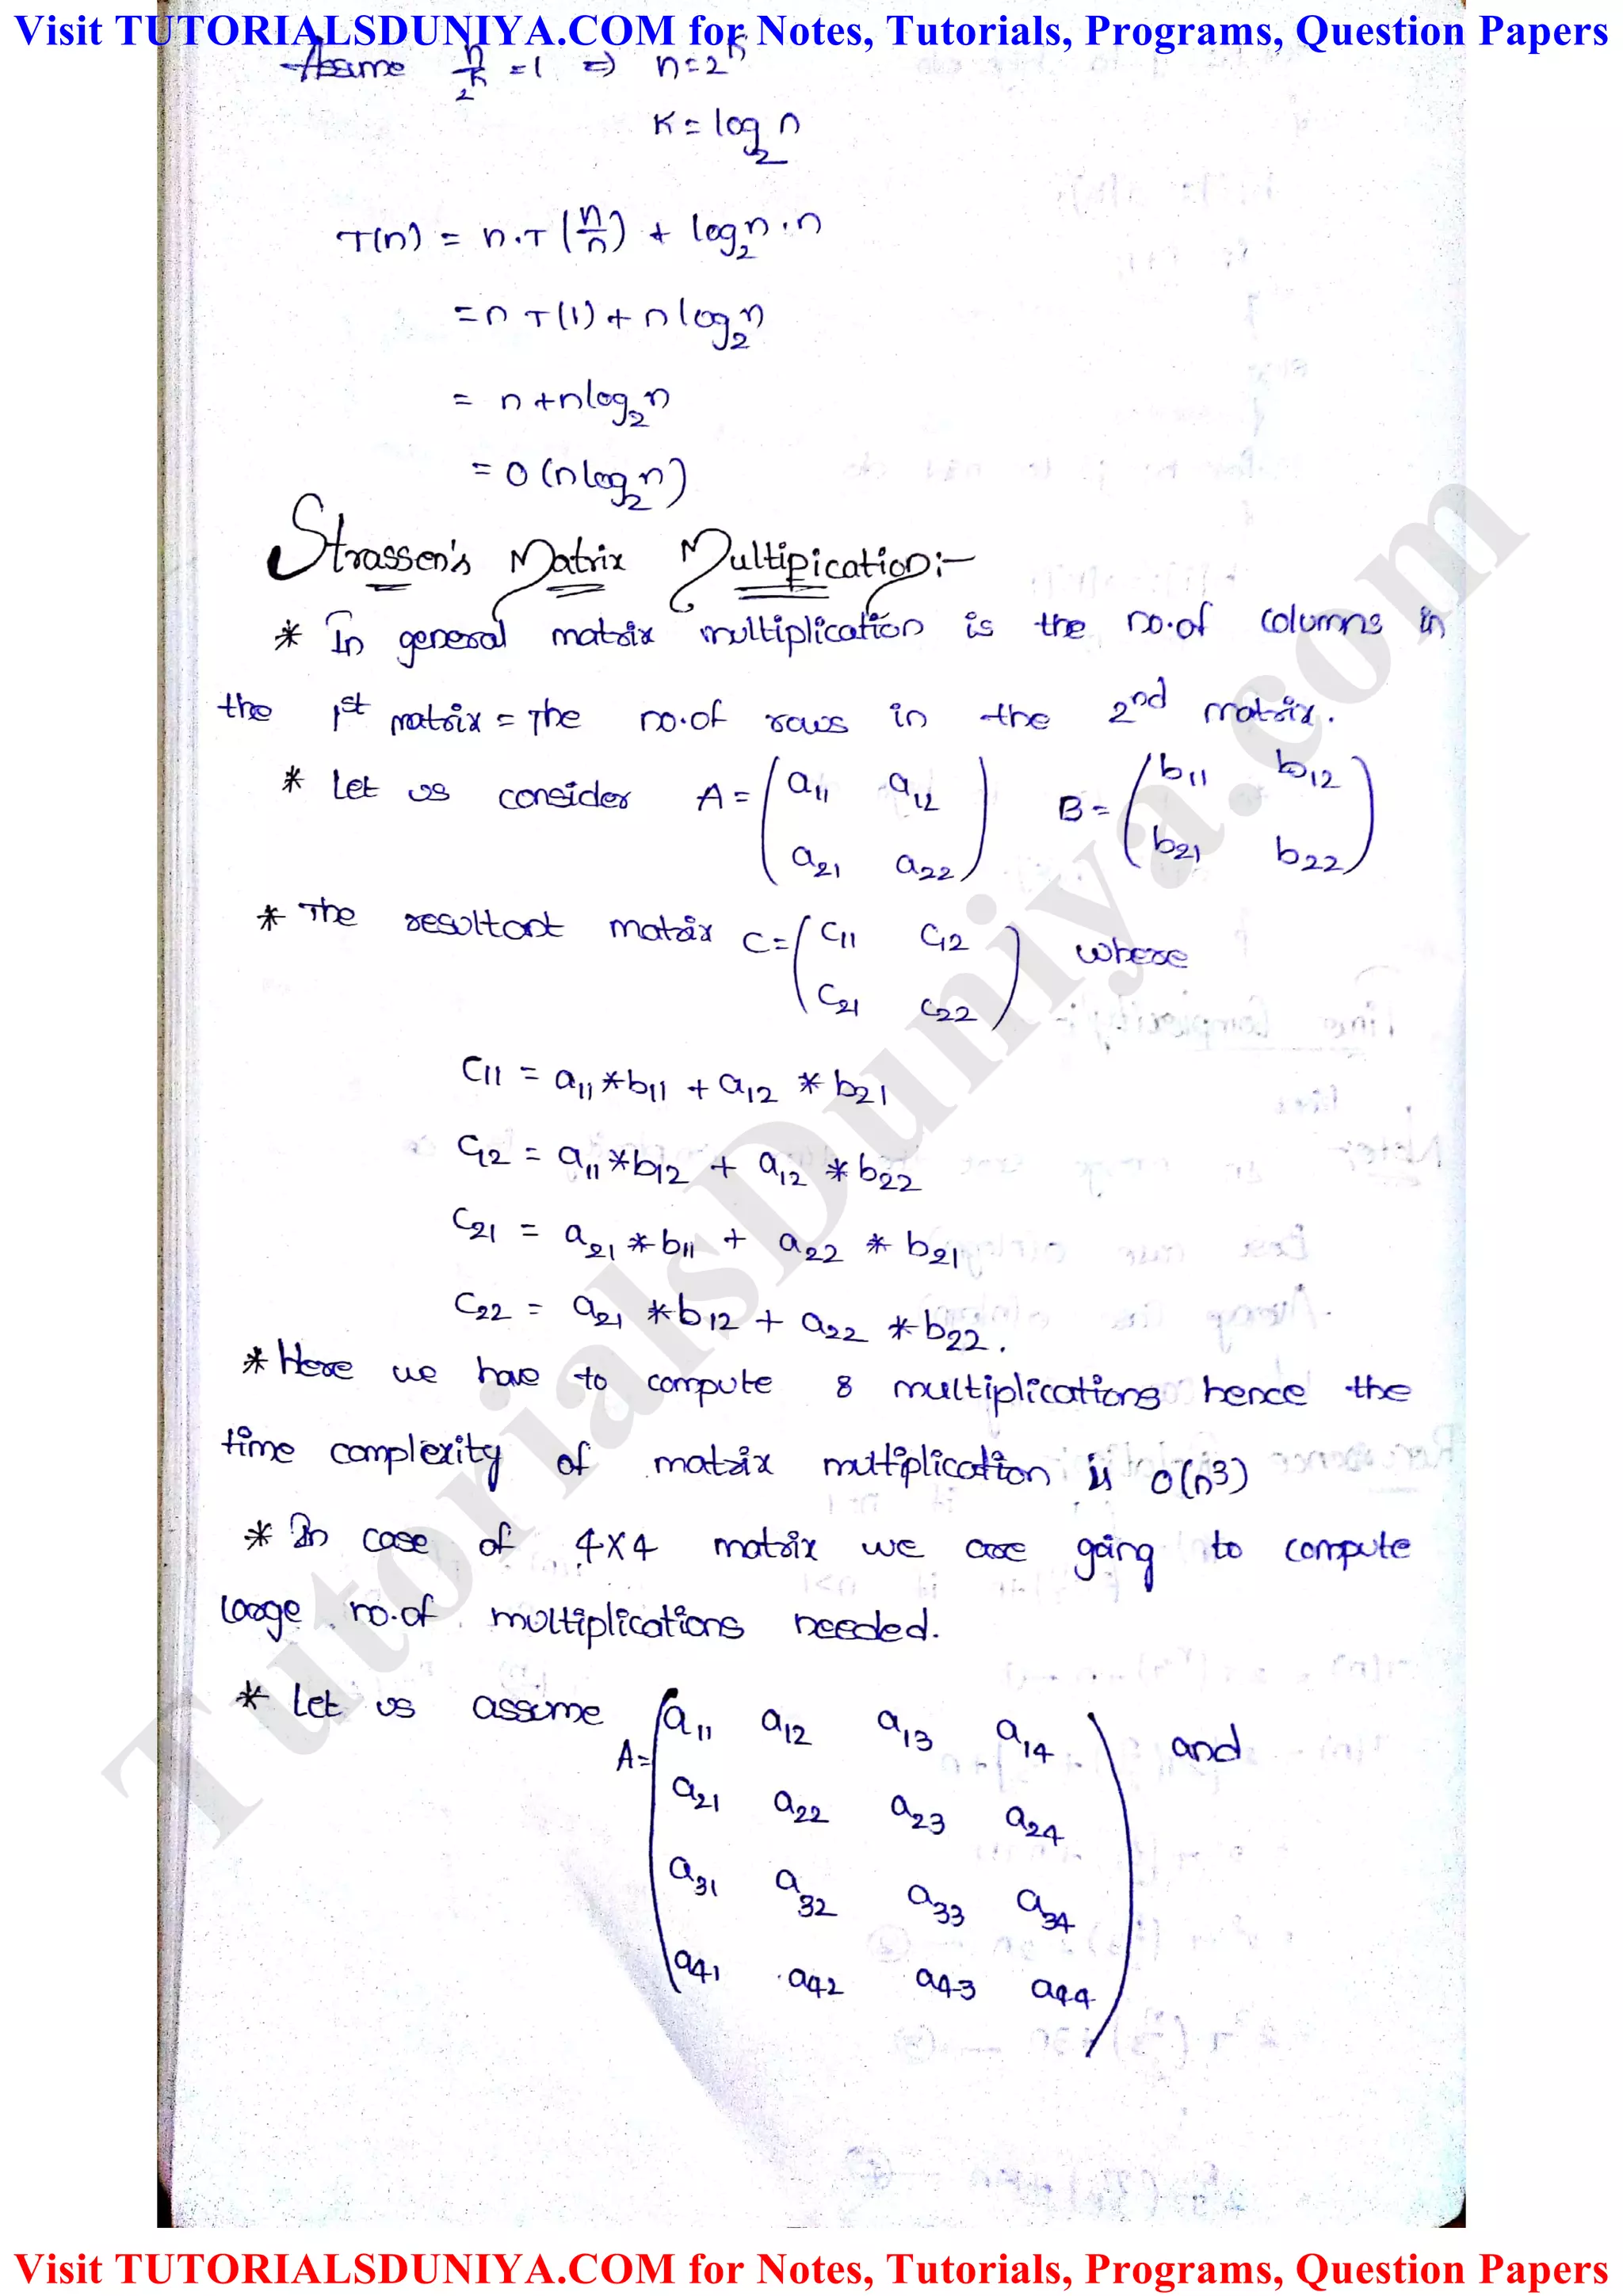 Visit TUTORIALSDUNIYA.COM for Notes, Tutorials, Programs, Question Papers
Assume n/2^K = 1 => n = 2^K
K = log₂n
T(n) = n.T(n/n) + log₂n . n
= n T(1) + n log₂n
= n + n log₂n
= O(n log₂n)
Strassen's Matrix Multipication:-
* In general matrix multiplication is the no.of columns in
the 1st matrix = The no.of rows in the 2nd matrix.
* Let us consider A = (a11 a12 B = (b11 b12
a21 a22) b21 b22)
* The resultant matrix C = (C11 C12 where
C21 C22)
C11 = a11 * b11 + a12 * b21
C12 = a11 * b12 + a12 * b22
C21 = a21 * b11 + a22 * b21
C22 = a21 * b12 + a22 * b22.
* Here we have to compute 8 multiplications hence the
time complexity of matrix multiplication is O(n³)
* In case of 4x4 matrix we are going to compute
large no.of multiplications needed.
* Let us assume A = (a11 a12 a13 a14 and
a21 a22 a23 a24
a31 a32 a33 a34
a41 a42 a43 a44)
TutorialsDuniya.com
Visit TUTORIALSDUNIYA.COM for Notes, Tutorials, Programs, Question Papers